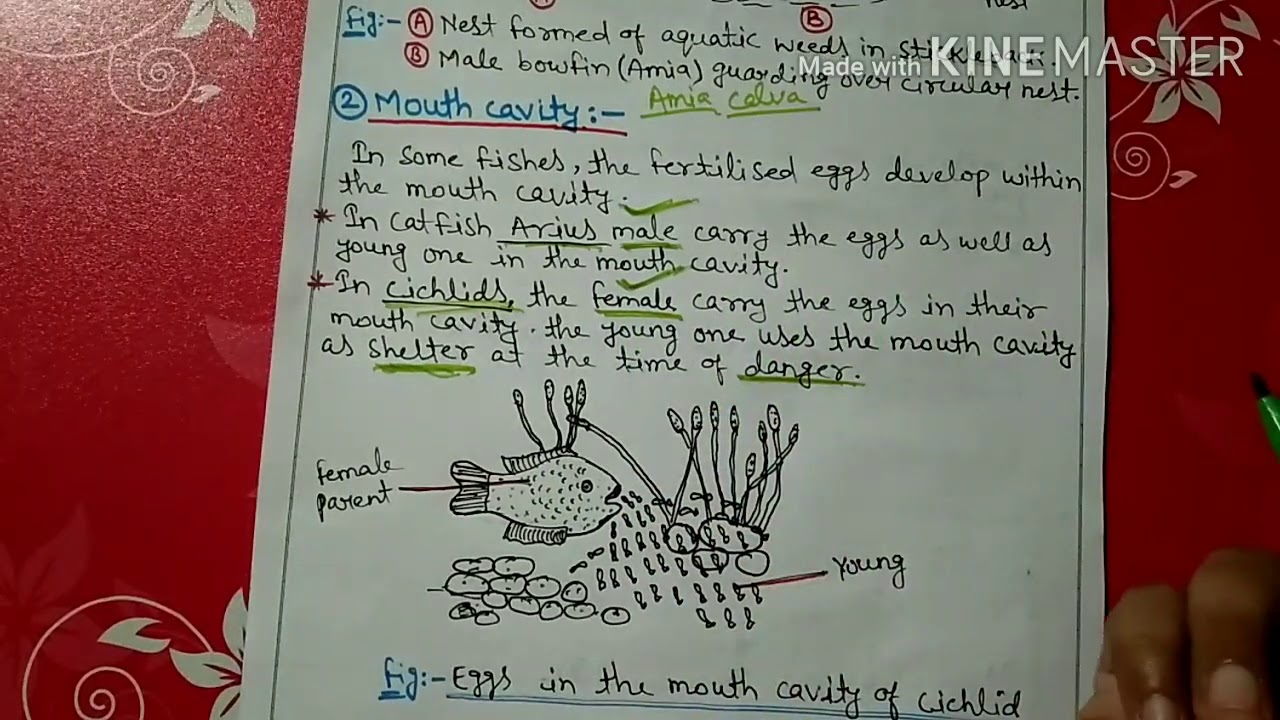 nest
B
Fig:- A Nest formed of aquatic weeds in
B Male bowfin (Amia) guarding over circular nest.
Made with KINEMASTER
② Mouth cavity:- Amia calva
In some fishes, the fertilised eggs develop within
the mouth cavity.
* In Catfish Arius male carry the eggs as well as
young one in the mouth cavity.
* In cichlids, the female carry the eggs in their
mouth cavity. the young one uses the mouth cavity
as shelter at the time of danger.
Female
parent
Young
Fig:- Eggs in the mouth cavity of cichlid